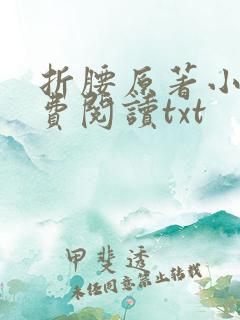 折腰原著小
費閱讀txt
甲斐透
未经同意禁止转载